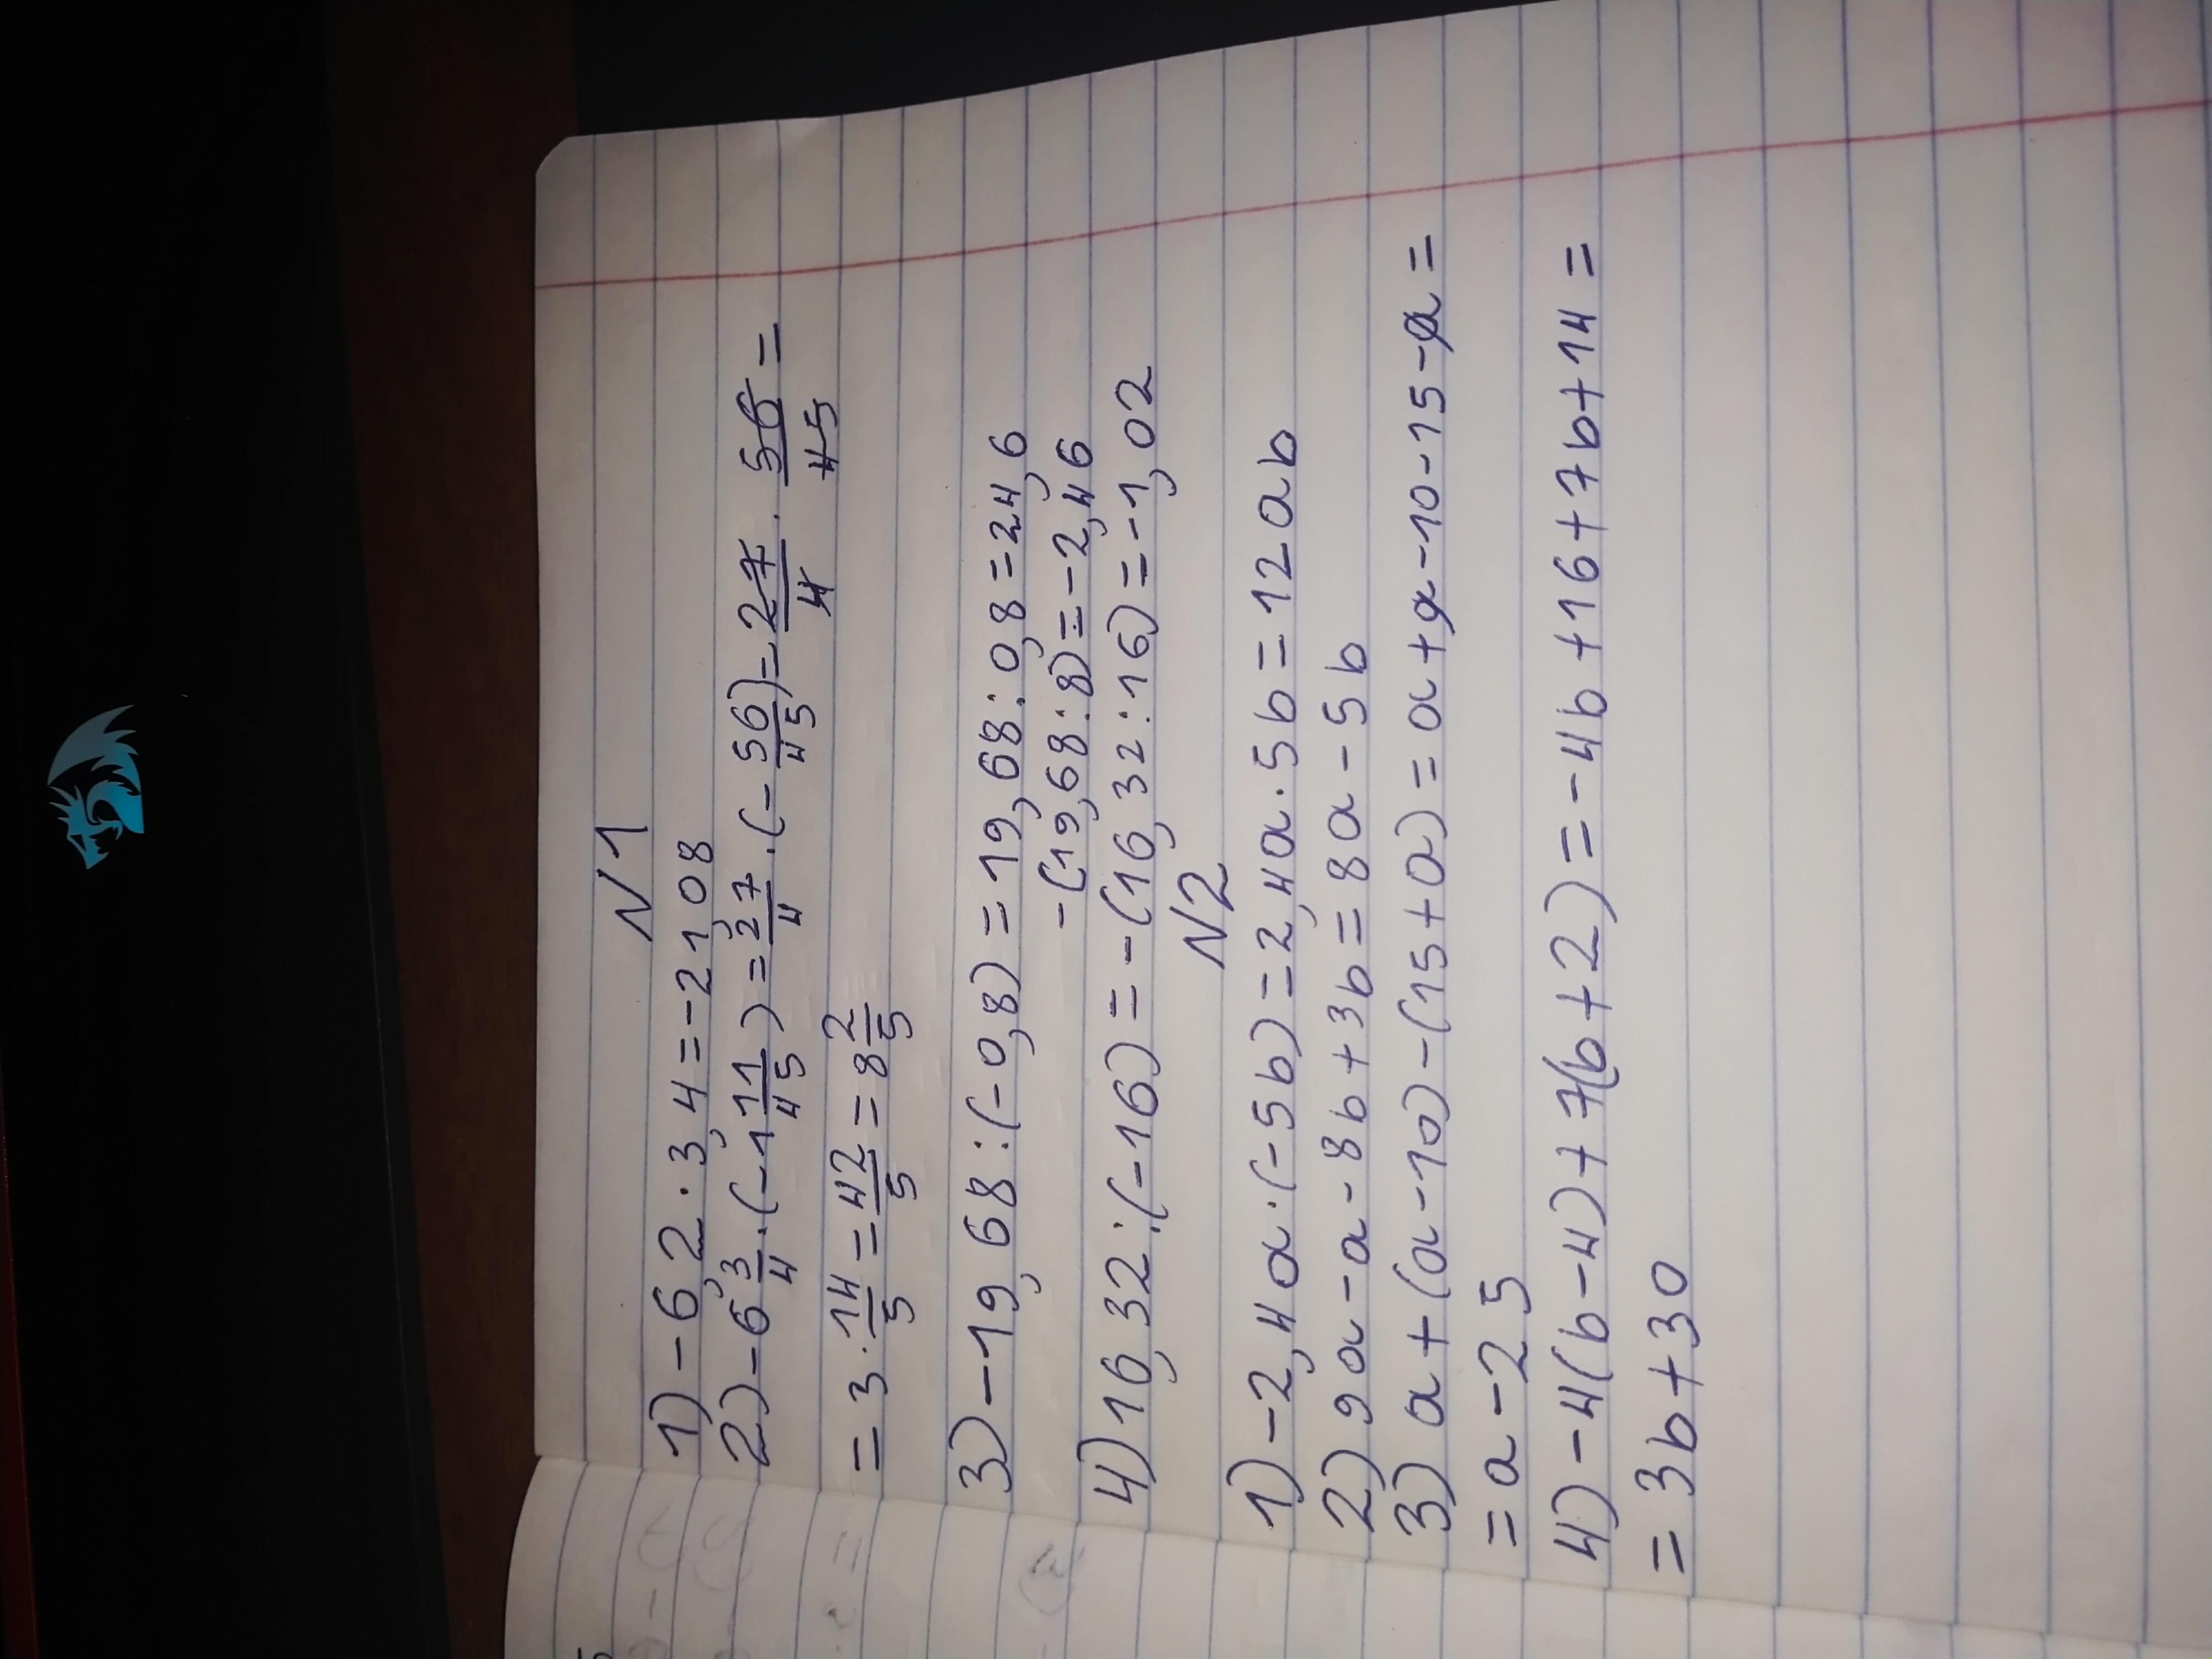 N1
1) -6,2 · 3,4 = -21,08
2) -6 3/4 · (-1 11/45) = 27/4 · (-56/45) = 27/4 · 56/45 =
= 3 · 14/5 = 42/5 = 8 2/5
3) -19,68 : (-0,8) = 19,68 : 0,8 = 24,6
-(19,68 : 8) = -2,46
4) 16,32 : (-16) = -(16,32 : 16) = -1,02
N2
1) -2,4a · (-5b) = 2,4a · 5b = 12ab
2) 9a - a - 8b + 3b = 8a - 5b
3) a + (a - 10) - (15 + a) = a + a - 10 - 15 - a =
= a - 25
4) -4(b - 4) + 7(b + 2) = -4b + 16 + 7b + 14 =
= 3b + 30